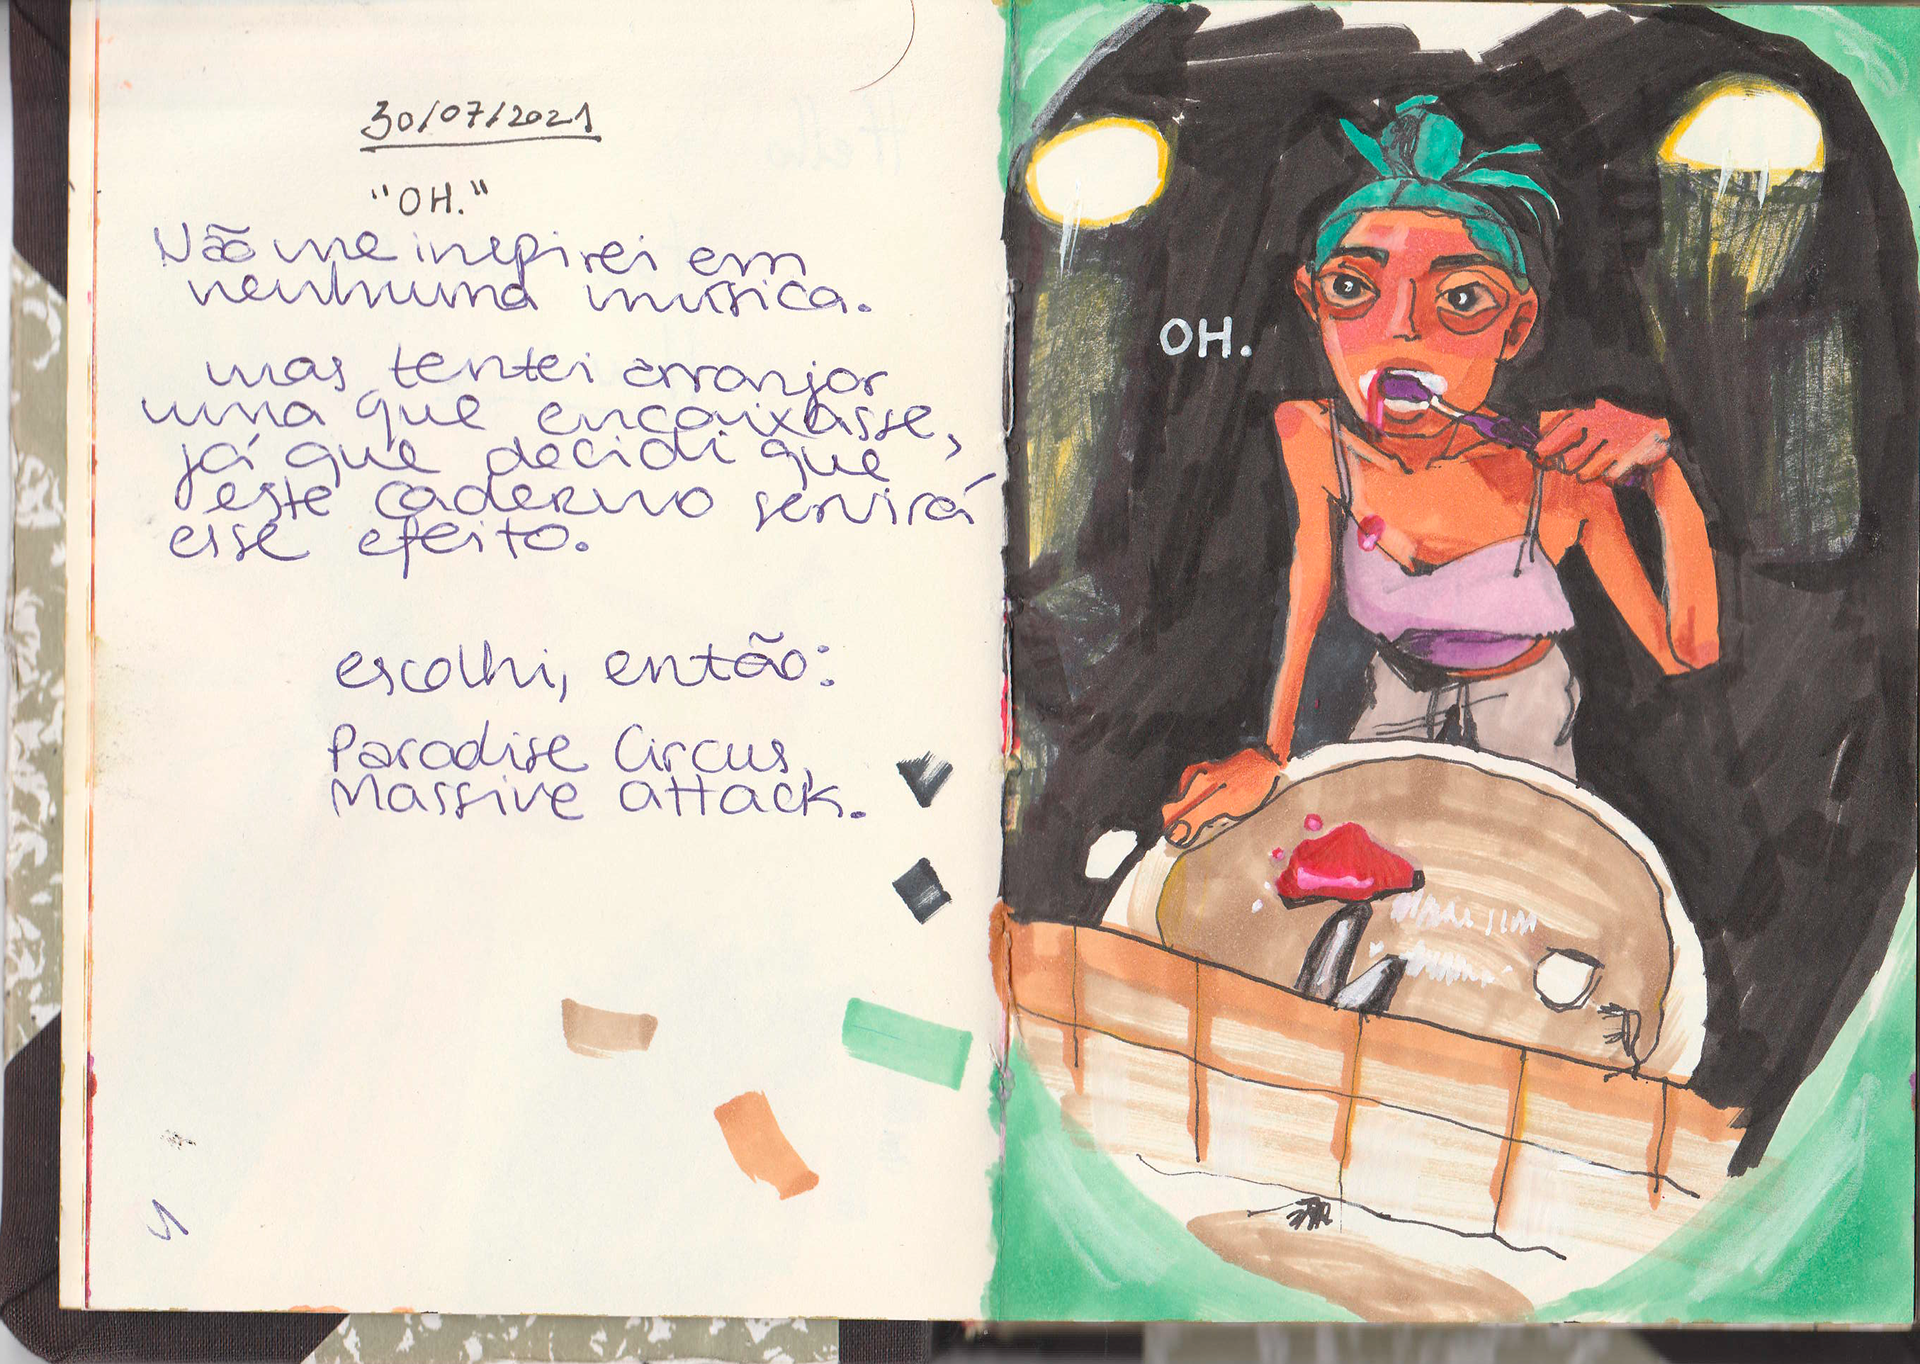 30/07/2021
"OH."
Não me inspirei em
nenhuma música.
mas tentei arranjar
uma que encaixasse,
já que decidi que
este caderno servirá
esse efeito.
escolhi, então:
Paradise Circus,
Massive attack.
OH.